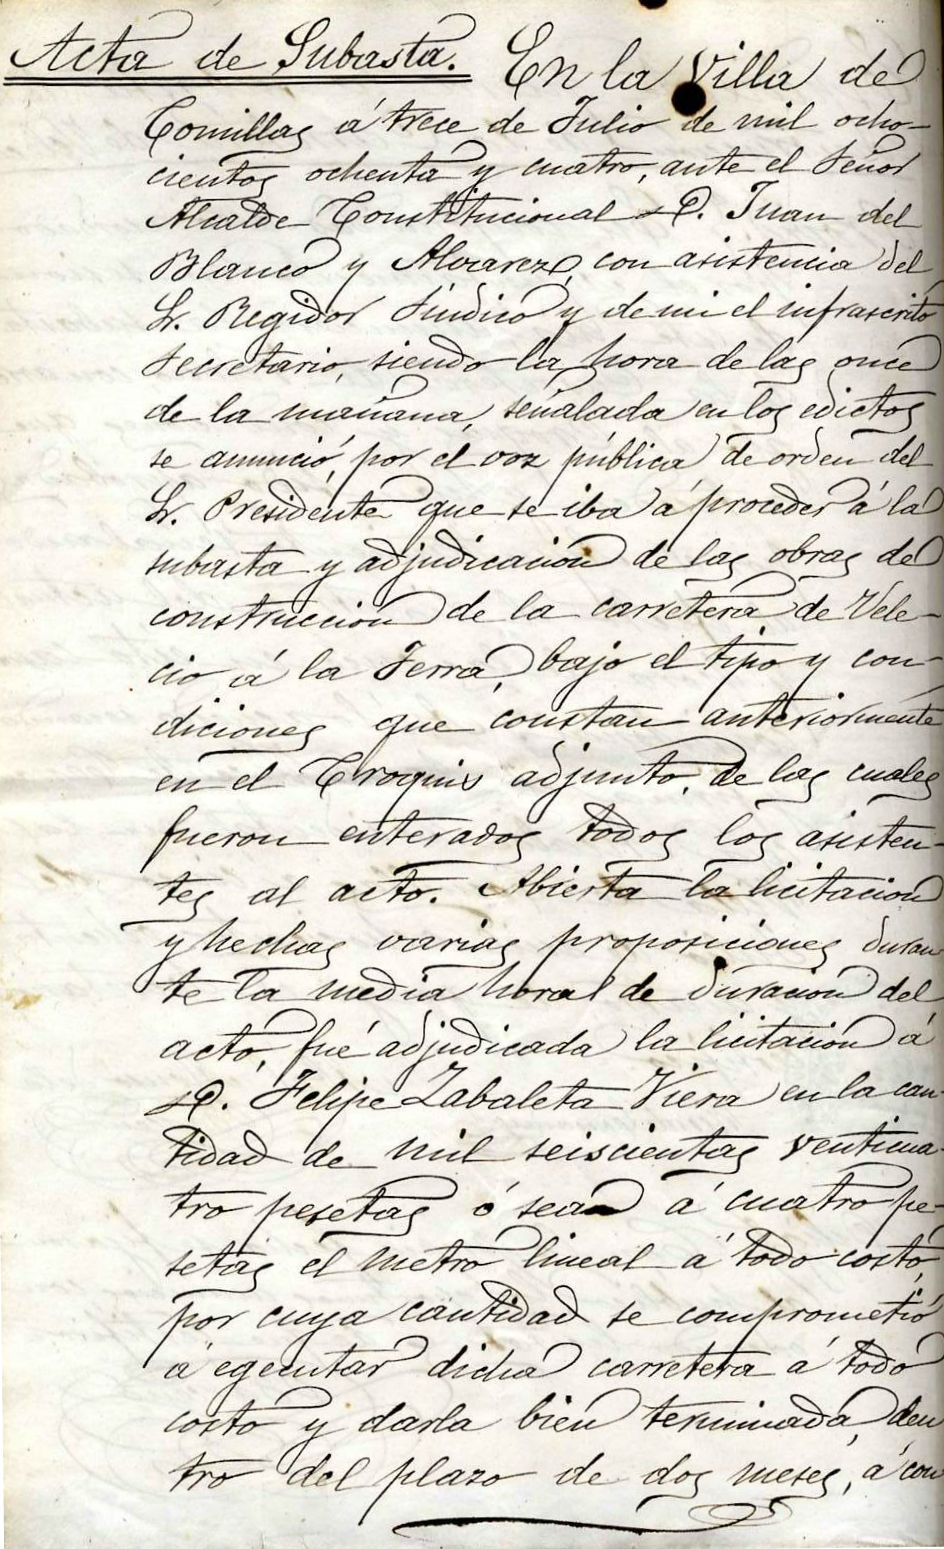 Acta de Subasta. En la Villa de
Comillas á trece de Julio de mil ocho-
cientos ochenta y cuatro, ante el Señor
Alcalde Constitucional D. Juan del
Blanco y Alvarez, con asistencia del
Sr. Regidor Sindico y de mi el infrascrito
Secretario, siendo la hora de las once
de la mañana, señalada en los edictos
se anunció, por el voz pública de orden del
Sr. Presidente que se iba á proceder á la
subasta y adjudicacion de las obras de
construccion de la carretera de Vele-
cio á la Jerra, bajo el tipo y con-
diciones que constan anteriormente
en el Croquis adjunto, de las cuales
fueron enterados todos los asisten-
tes al acto. Abierta la licitacion
y hechas varias proposiciones duran
te la media hora de duracion del
acto, fué adjudicada la licitación á
D. Felipe Zabaleta Viera en la can-
tidad de mil seiscientas venticua-
tro pesetas ó sean á cuatro pe-
setas el metro lineal á todo costo,
por cuya cantidad se comprometió
á egecutar dicha carretera á todo
costo y darla bien terminada, den
tro del plazo de dos meses, á con